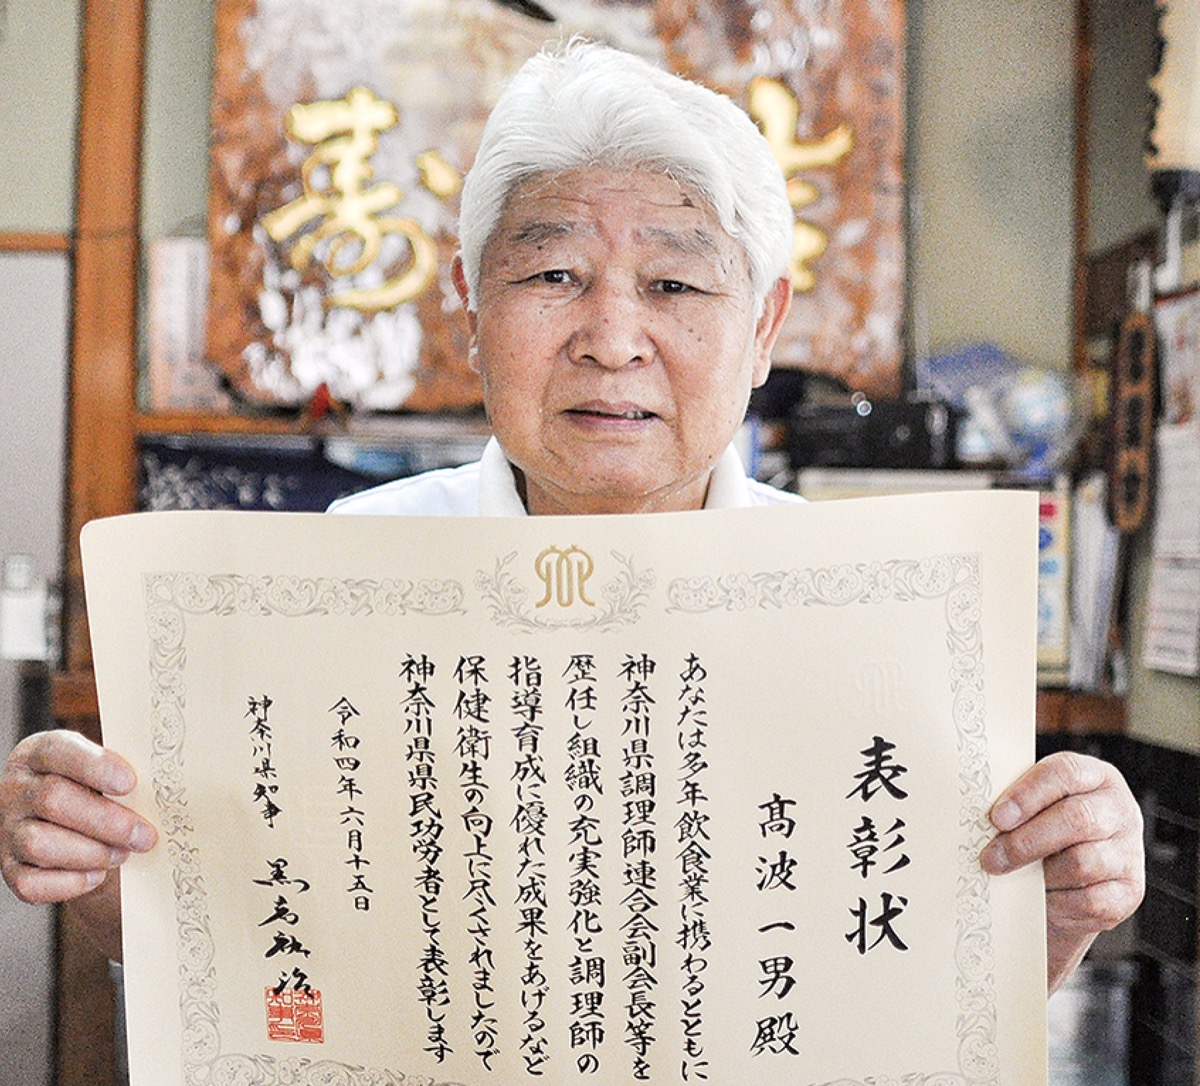 表彰状
髙波一男殿
あなたは多年飲食業に携わるとともに
神奈川県調理師連合会副会長等を
歴任し組織の充実強化と調理師の
指導育成に優れた成果をあげるなど
保健衛生の向上に尽くされましたので
神奈川県県民功労者として表彰します
令和四年六月十五日
神奈川県知事
黒岩祐治
寿